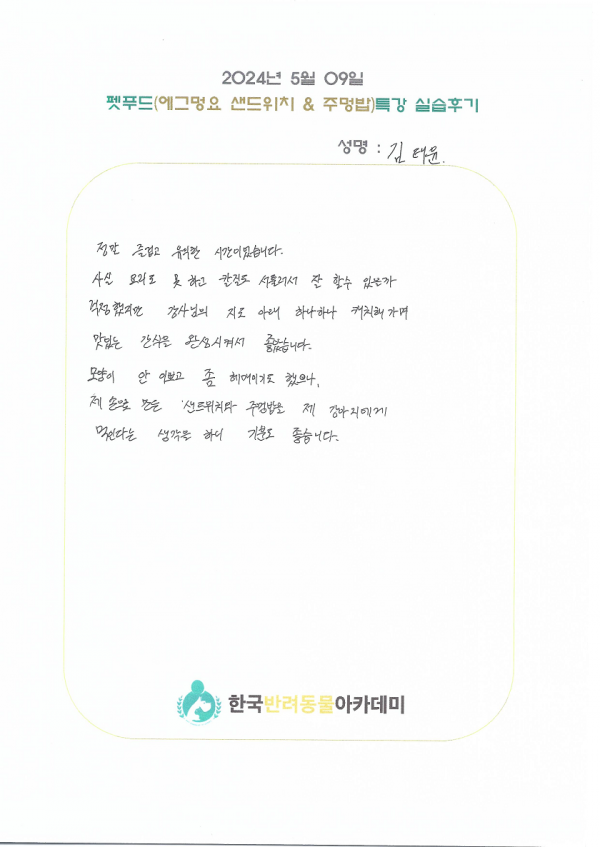 2024년 5월 09일
펫푸드(에그멍요 샌드위치 & 주멍밥)특강 실습후기
성명 : 김태윤.
정말 즐겁고 유익한 시간이었습니다.
사실 요리도 못 하고 칼질도 서툴러서 잘 할수 있는가
걱정했지만 강사님의 지도 아래 하나하나 캐치해가며
맛있는 간식을 완성시켜서 좋았습니다.
모양이 안 이쁘고 좀 헤매이기도 했으나,
제 손으로 만든 샌드위치와 주멍밥을 제 강아지에게
먹인다는 생각을 하니 기분도 좋습니다.
한국반려동물아카데미